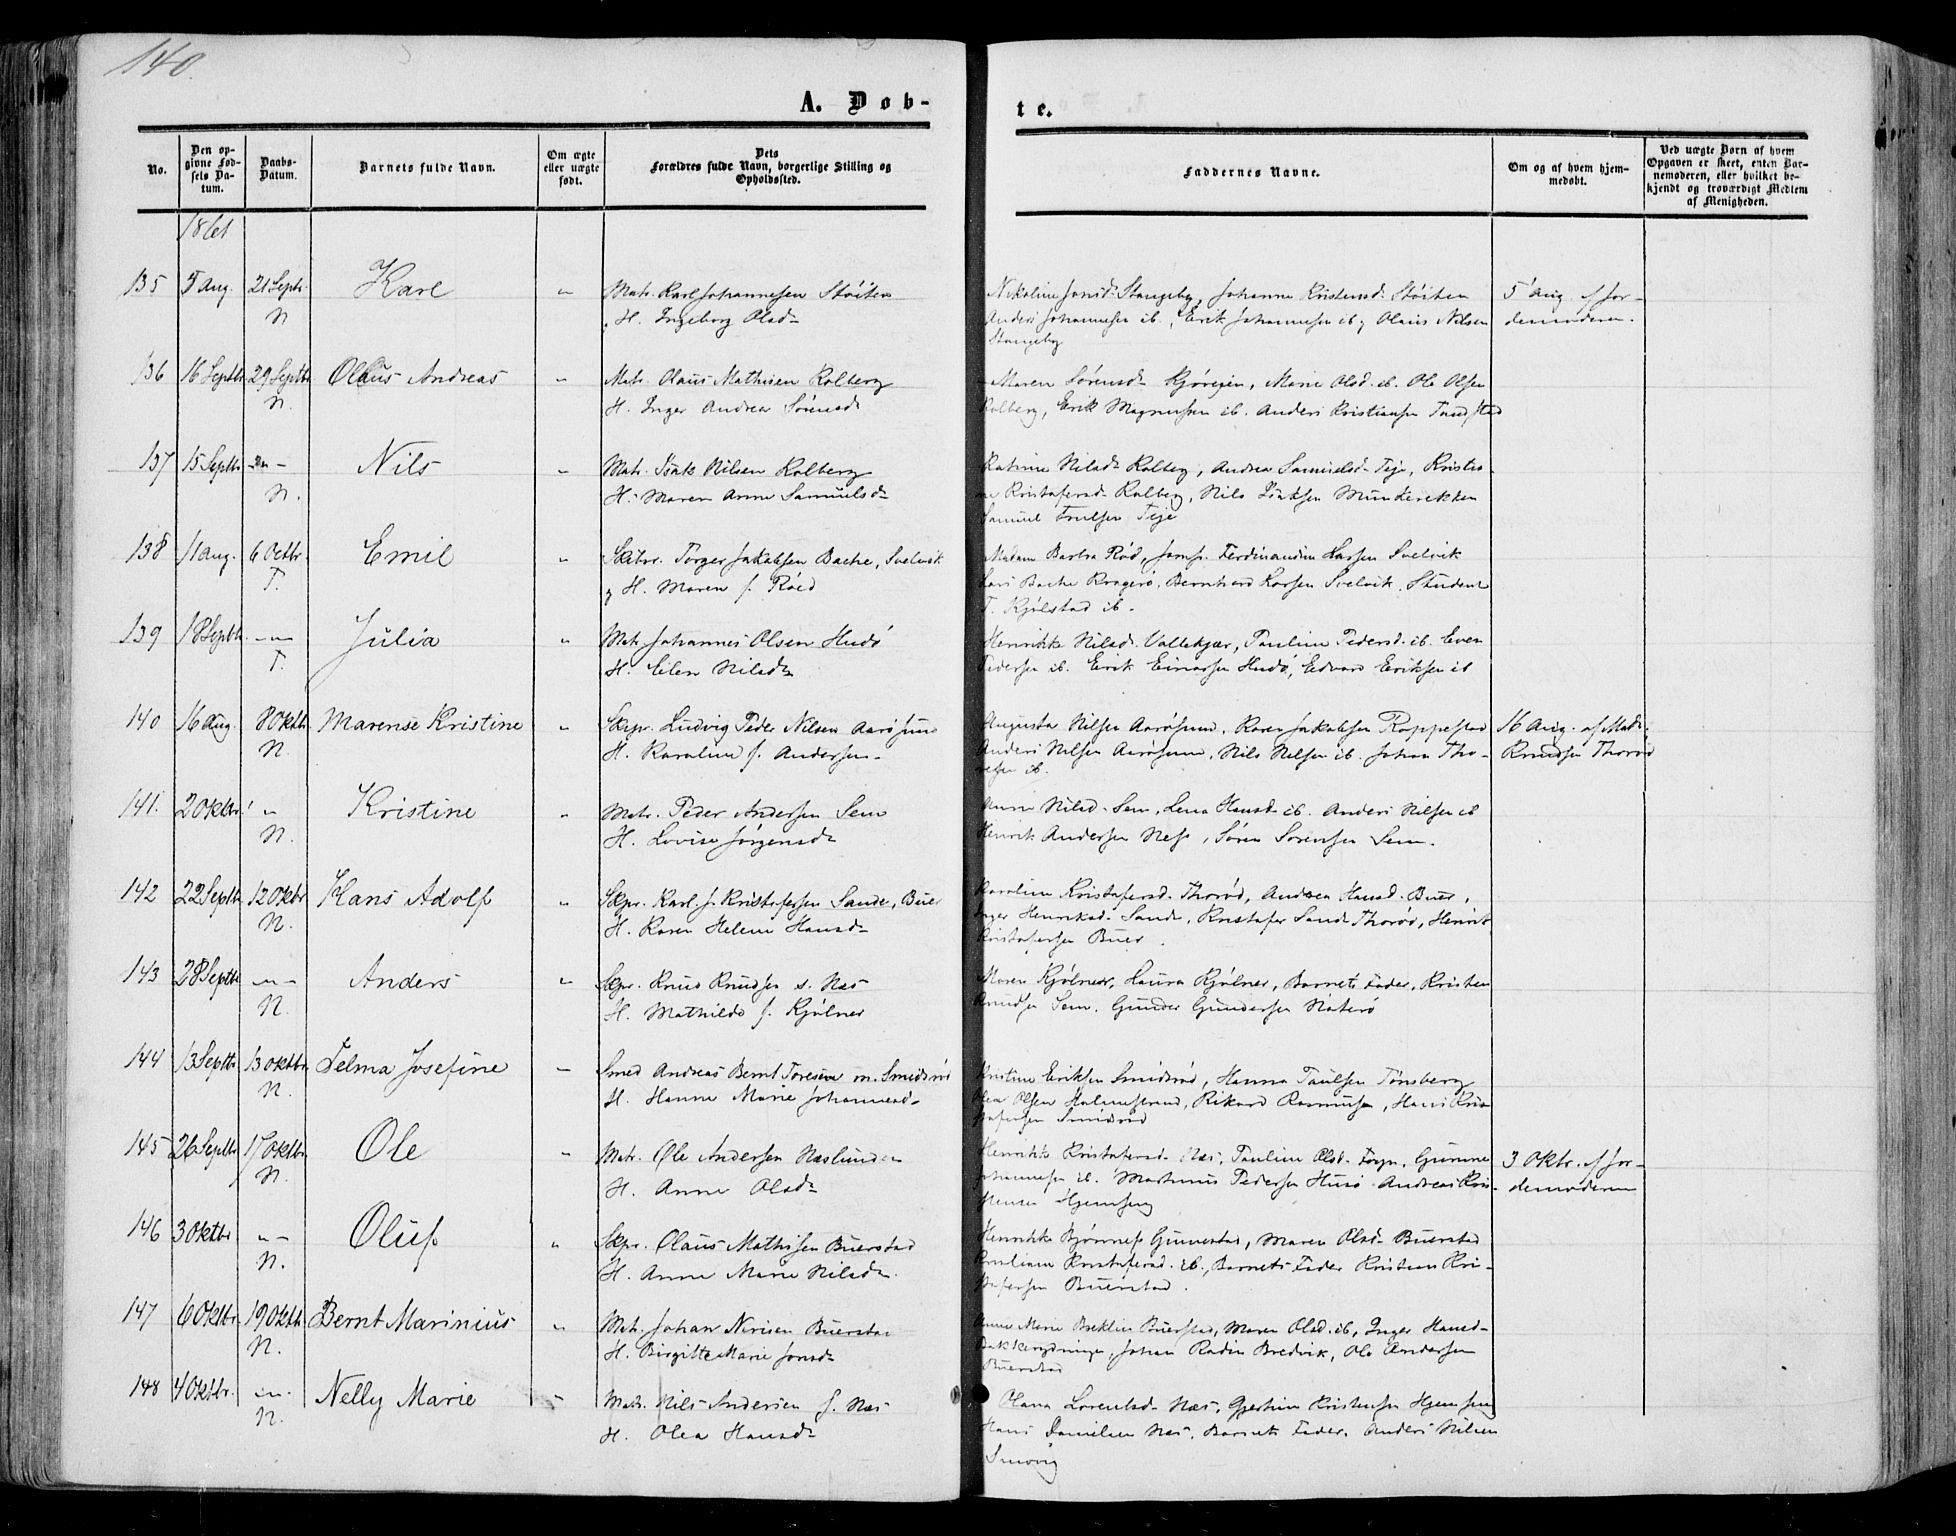 140.
A. Døb-
te.
No.
Den op-
givne Fød-
sels Da-
tum.
Daabs-
Datum.
Barnets fulde Navn.
Om ægte
eller uægte
født.
Dets
Forældres fulde Navn, borgerlige Stilling og
Opholdssted.
Faddernes Navne.
Om og af hvem hjem-
medøbt.
Ved uægte Børn af hvem
Opgaven er skeet, enten Bar-
nemoderen, eller hvilket be-
kjendt og troværdigt Medlem
af Menigheden.
135 5 Aug. 21 Septr. Karl " Matr. Karl Johannesen Støiten
N H. Ingeborg Olsd-
Nikoline Jonsd. Stangeby, Johanne Kristensd. Støiten
Anders Johannesen ib., Erik Johannesen ib, Olaus Nilsen
Stangeby
5 Aug. af Jor-
demoderen.
136 16 Septbr 29 Septbr Olaus Andreas " Matr. Olaus Mathisen Kolberg
N. H. Inger Andrea Sørensd-
Maren Sørensd- Marie Olsd. ib. Ole Olsen
Kolberg, Erik Magnussen ib. Anders Kristiansen
137 15 Septbr - - Nils " Matr. Isak Nilsen Kolberg
N. H. Maren Anne Samuelsd-
Katrine Nilsd- Kolberg, Andrea Samuelsd- Teje, Kristi-
ne Kristofersd- Kolberg, Nils Isaksen Munderekken
Samuel Trulsen Teje
138 11 Aug. 6 Octbr. Emil " Torger Jakobsen Bache, Svelvik
T. og H. Maren f. Røed
Madam Barbra Rød, Jomf. Ferdinandine Svelvik
Bache Kragerø, Bernhard Svelvik, Student
T. Kjølstad ib-
139 18 Septb. - " - Julia " Matr. Johannes Olsen Hudø
T. H. Elen Nilsd-
Henrikke Nilsd. Vallekjær, Pauline Pedersd. ib. Even
Pedersen ib. Erik Einarsen Hudø, Edvard Eriksen ib
140 16 Aug. 8 Oktb. Marense Kristine " Skpr. Ludvig Peder Nilsen Aarøsund
N. H. Karoline f. Andersen-
Augusta Nilsen Aarøsund, Karen Jakobsen Roppestad
Anders Nilsen Aarøsund, Nils Nilsen ib. Johan Tho-
resen ib.
16 Aug. af Mad.
Knudsen Thorød
141. 2 Oktbr. " Kristine " Matr. Peder Andersen Sem
N. H. Lovise Jørgensd-
Anne Nilsd- Sem, Lena Hansd- ib. Anders Nilsen ib
Henrik Andersen Ness, Søren Sørensen Sem.
142 22 Septb. 12 Oktbr Hans Adolf " Skpr. Karl J. Kristofersen Sande, Buer
N. H. Karen Helene Hansd-
Karoline Kristofersd- Thorød, Andrea Hansd- Buer,
Inger Henriksd- Sande, Kristofer Sande Thorød, Henrik
Kristofersen Buer.
143 28 Septbr - " - Anders " Skpr. Knud Knudsen s. Næs
N. H. Mathilde f. Kjølner
Maren Kjølner, Laura Kjølner, Barnets Fader, Kristen
Knudsen Sem, Gunder Gundersen Nøterø
144 13 Septbr 13 Oktbr. Selma Josefine - Smed Andreas Bernt Toresen m. Smidsrød
N. H. Hanne Marie Johannesd-
Kristine Eriksen Smidsrød, Hanna Paulsen Tønsberg
Olea Olsen Holmestrand, Rikard Rasmussen, Hans Kris-
tofersen Smidsrød
145 26 Septbr 17 Oktbr. Ole " Matr. Ole Andersen Næslunden
N. H. Anne Olsd-
Henrikke Kristofersd- Næs, Pauline Olsd- Føyn, Gunne
Johannesen ib. Martinus Pedersen Husø Andreas Kri-
stensen Hjemseng
3 Oktr. af Jor-
demoderen
146 3 Oktbr - " - Oluf " Skpr. Olaus Mathisen Buerstad
N. H. Anne Marie Nilsd-
Henrikke Bjønness Gunnestad, Maren Olsd- Buerstad
Kristofersd. ib., Barnets Fader Kristian Kri-
stofersen Buerstad.
147 6 Oktbr. 19 Oktb. Bernt Marinius " Matr. Johan Nirisen Buerstad
N. H. Birgitte Marie Jonsd-
Anne Marie Buerstad, Maren Olsd. ib, Inger Hansd-
Johan Bredvik, Ole Andersen
Buerstad
148 4 Oktbr. - " - Nelly Marie " Matr. Nils Andersen f. Næs
N. H. Olea Hansd-
Olava Lorentsd- Næs, Gjertine Kristensen Hjemseng
Hans Danielsen Næs, Barnets Fader, Anders Nilsen
Smovig